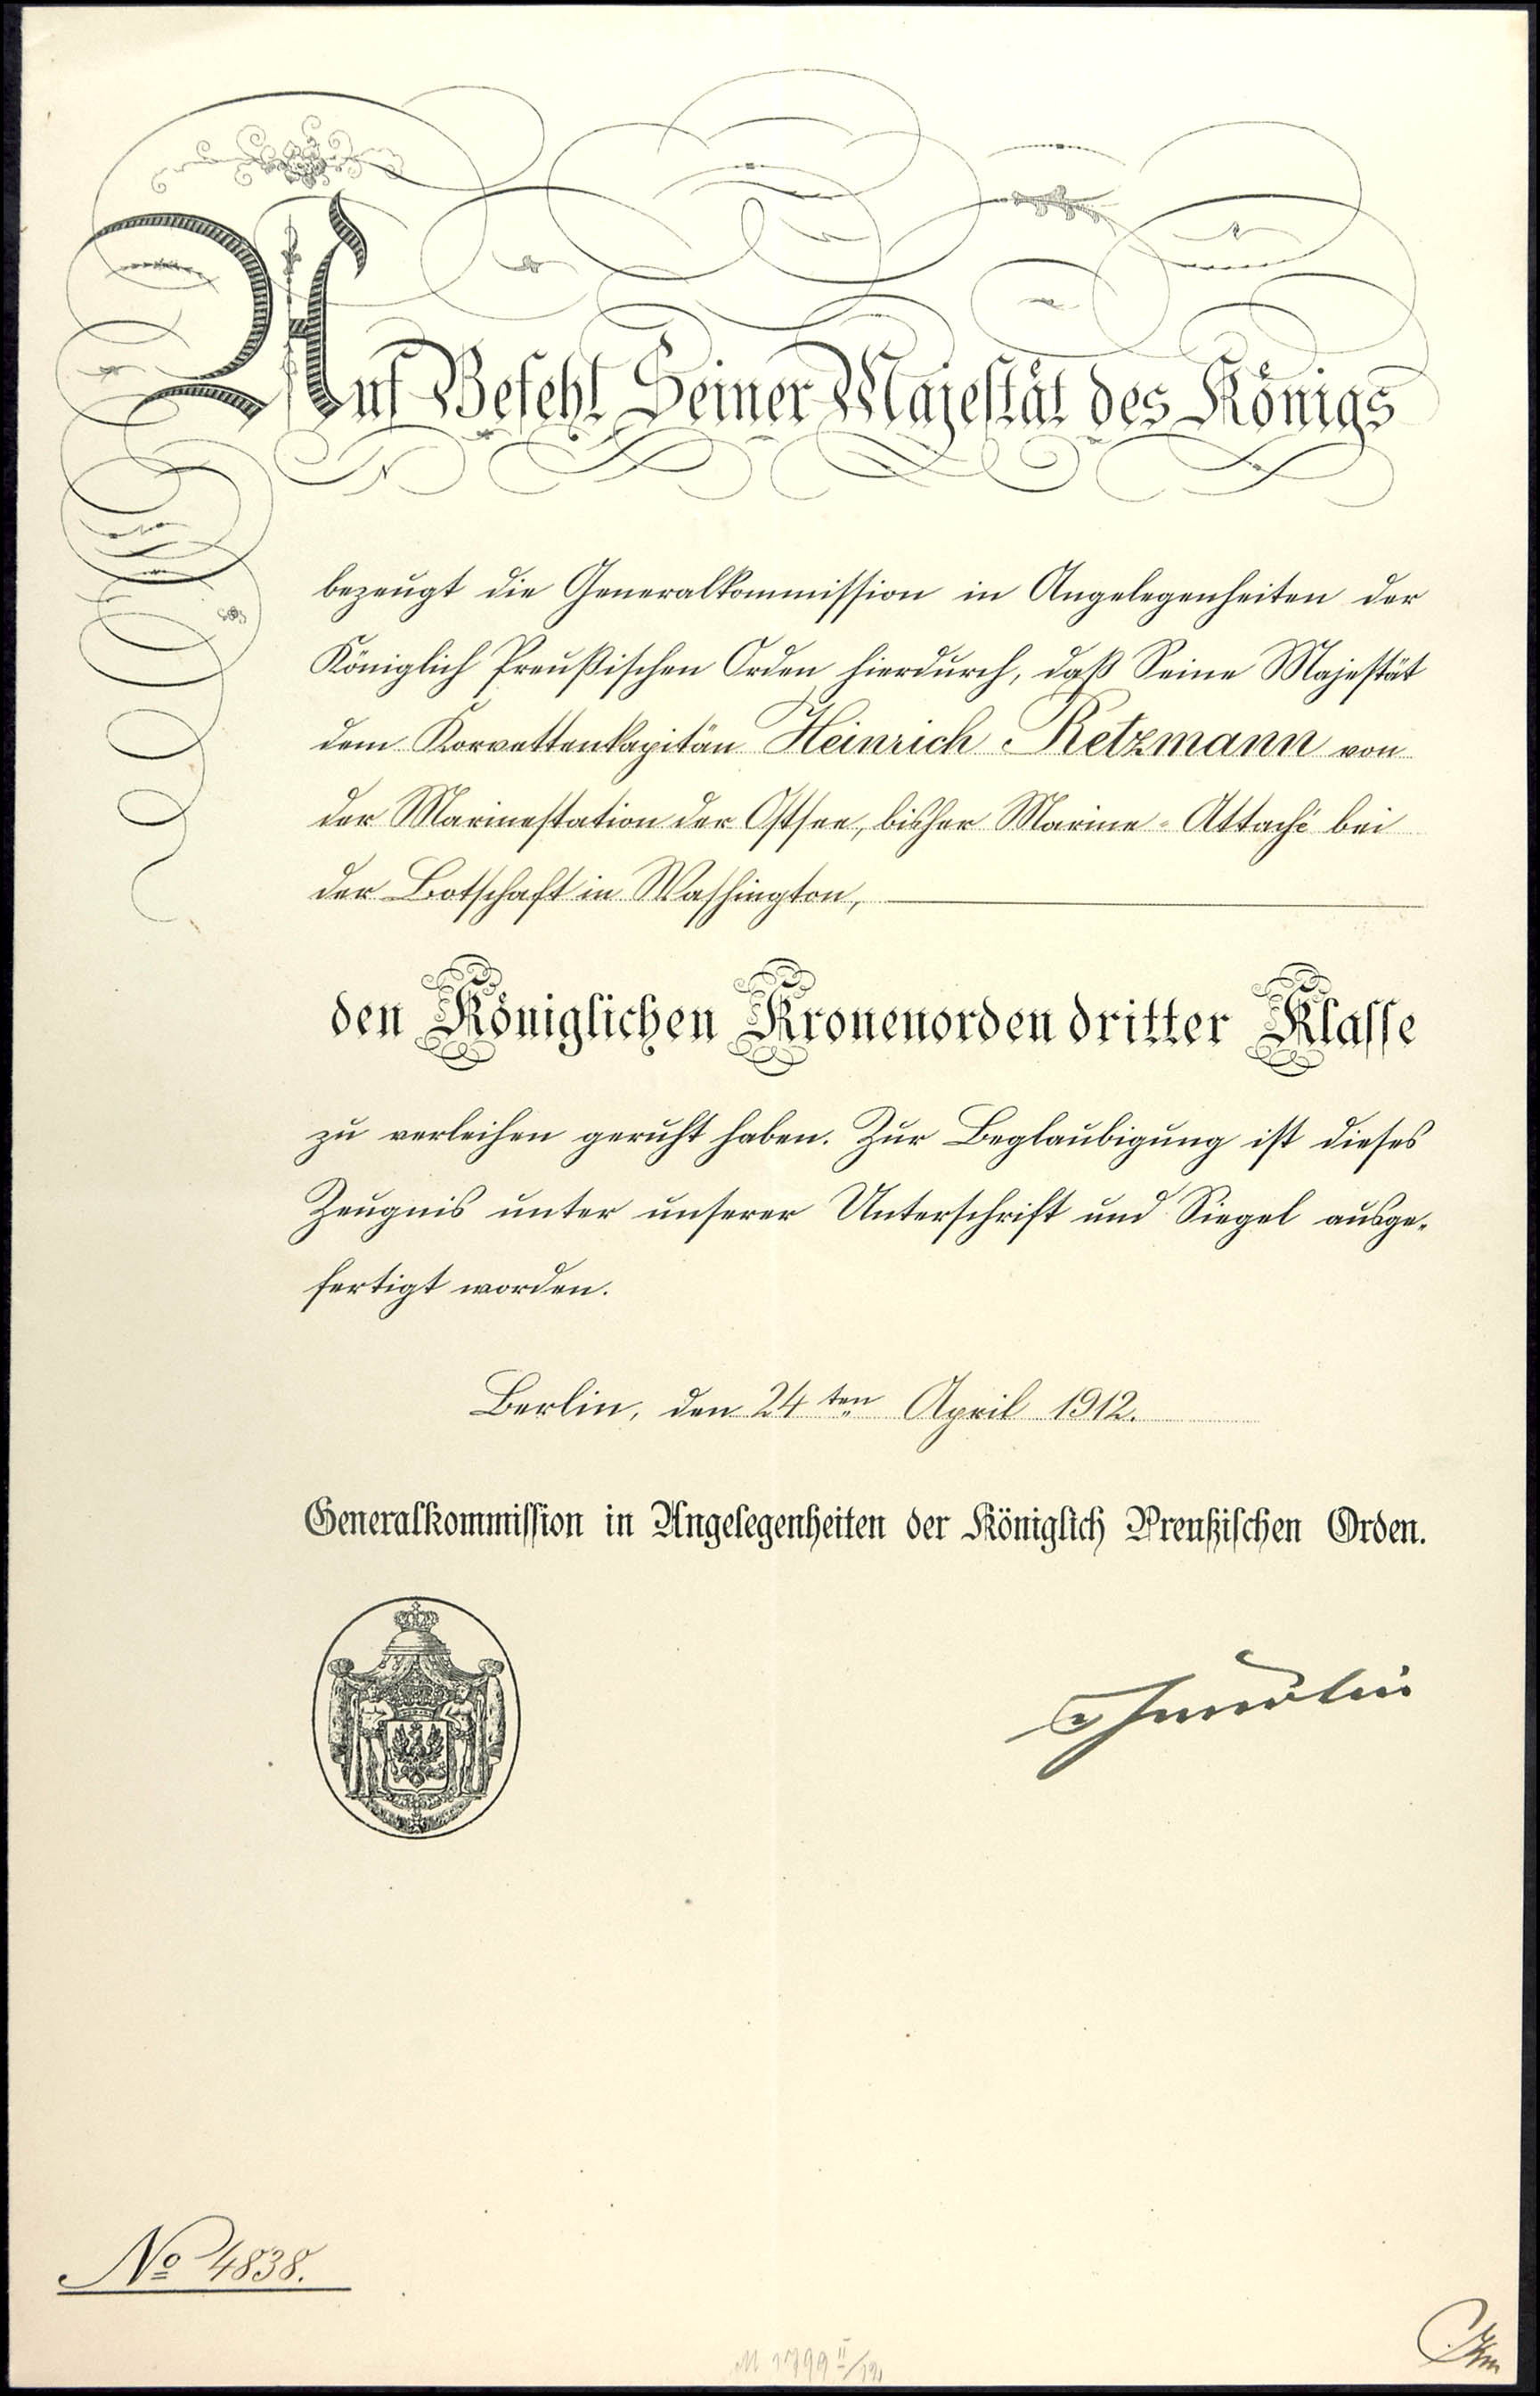 Auf Befehl Seiner Majestät des Königs
bezeugt die Generalkommission in Angelegenheiten der
Königlich Preußischen Orden hierdurch, daß Seine Majestät
dem Korvettenkapitän Heinrich Retzmann von
der Marinestation der Ostsee, bisher Marine-Attaché bei
der Botschaft in Washington,
den Königlichen Kronenorden dritter Klasse
zu verleihen geruht haben. Zur Beglaubigung ist dieses
Zeugnis unter unserer Unterschrift und Siegel ausge-
fertigt worden.
Berlin, den 24ten April 1912.
Generalkommission in Angelegenheiten der Königlich Preußischen Orden.
No 4838.
M 1799 II/12